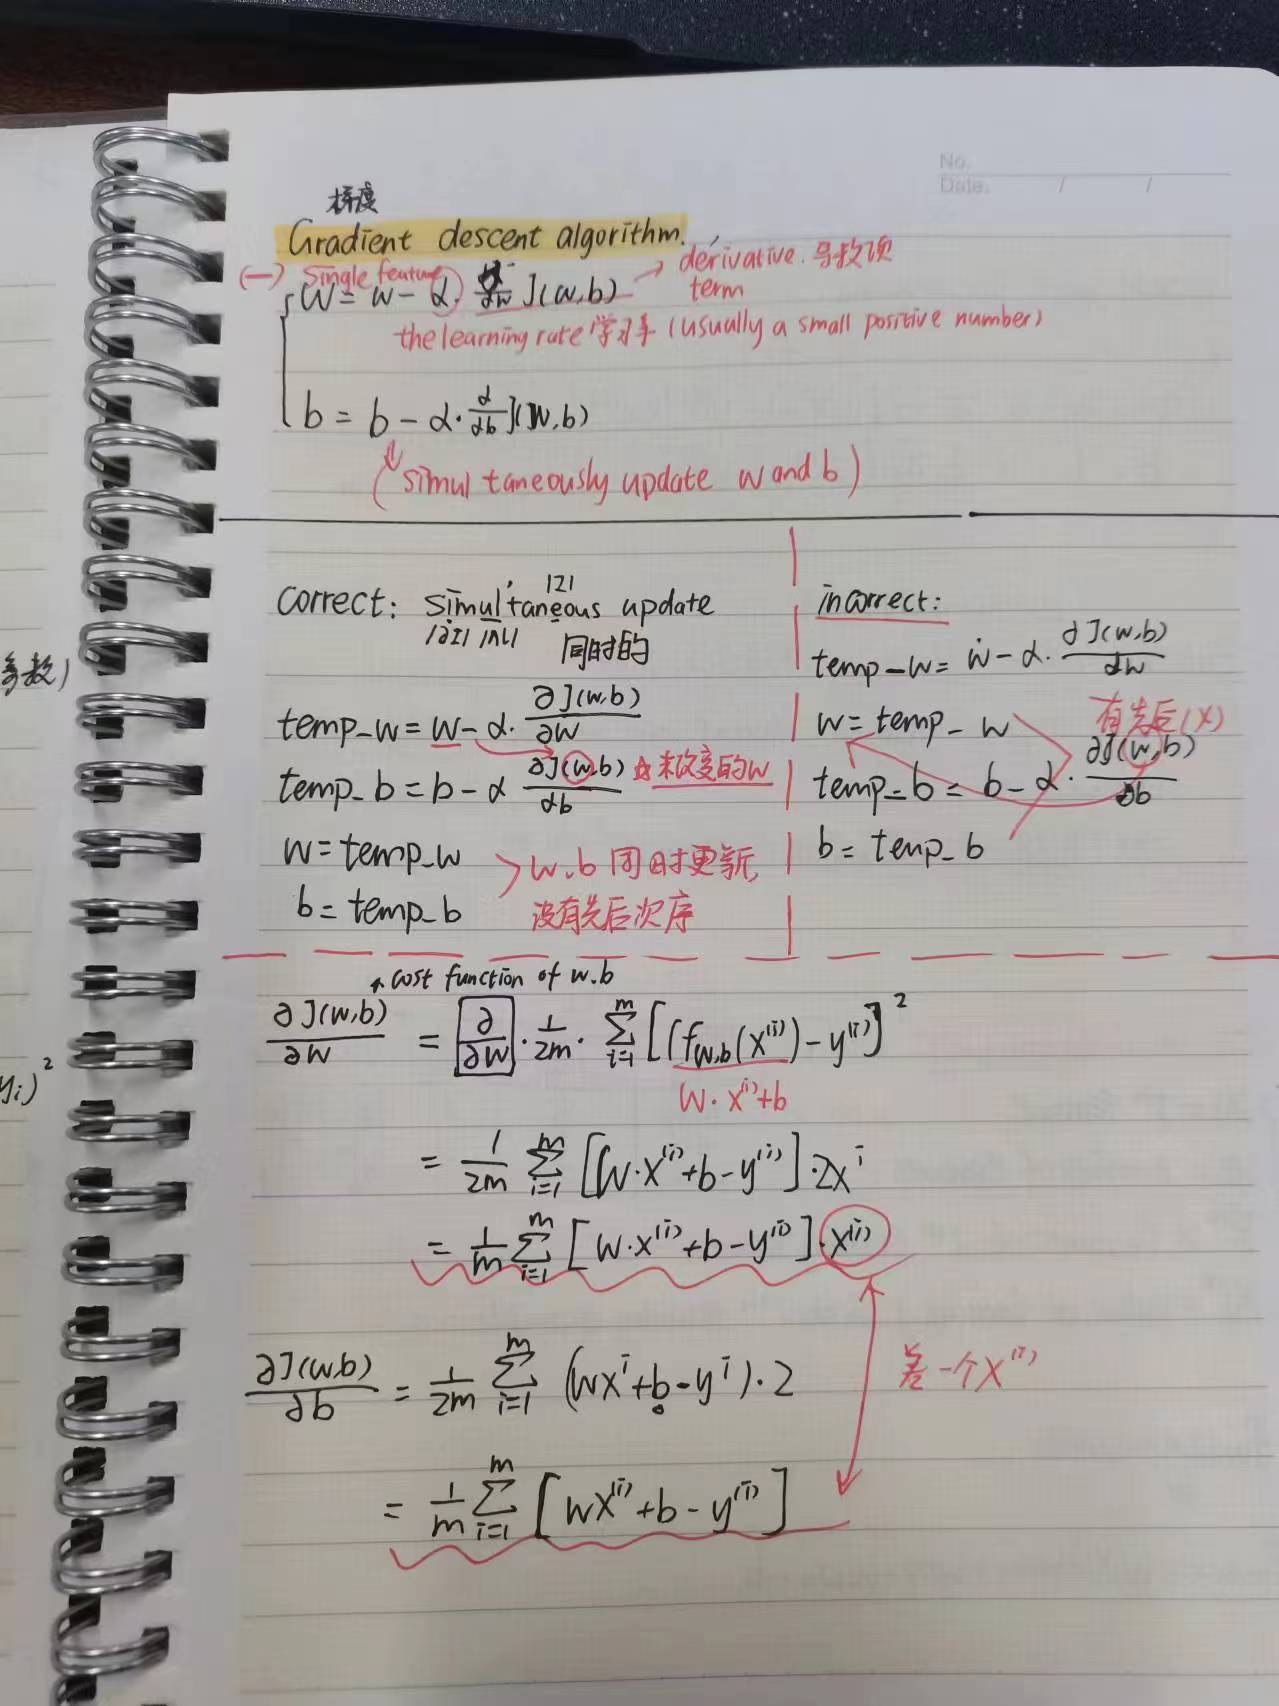 No.
Date. / /
梯度
Gradient descent algorithm.
(一) single feature
w = w - α · d/dw J(w,b) → derivative term 导数项
the learning rate 学习率 (usually a small positive number)
b = b - α · d/db J(w,b)
(simultaneously update w and b)
correct: simultaneous update
同时的
temp_w = w - α · ∂J(w,b)/∂w
temp_b = b - α ∂J(w,b)/∂b ☆ 未改变的w
w = temp_w
b = temp_b
w.b 同时更新,
没有先后次序
incorrect:
temp_w = w - α · ∂J(w,b)/∂w
w = temp_w 有先后(X)
temp_b = b - α · ∂J(w,b)/∂b
b = temp_b
cost function of w.b
∂J(w,b)/∂w = ∂/∂w · 1/2m · Σ_{i=1}^{m} [(f_{w,b}(x^{(i)}) - y^{(i)}]²
w · x^{(i)} + b
= 1/2m Σ_{i=1}^{m} [w·x^{(i)} + b - y^{(i)}] · 2x^i
= 1/m Σ_{i=1}^{m} [w·x^{(i)} + b - y^{(i)}] · x^{(i)}
差一个x^{(i)}
∂J(w,b)/∂b = 1/2m Σ_{i=1}^{m} (wx^i + b - y^i) · 2
= 1/m Σ_{i=1}^{m} [wx^{(i)} + b - y^{(i)}]
参数)
yi)²